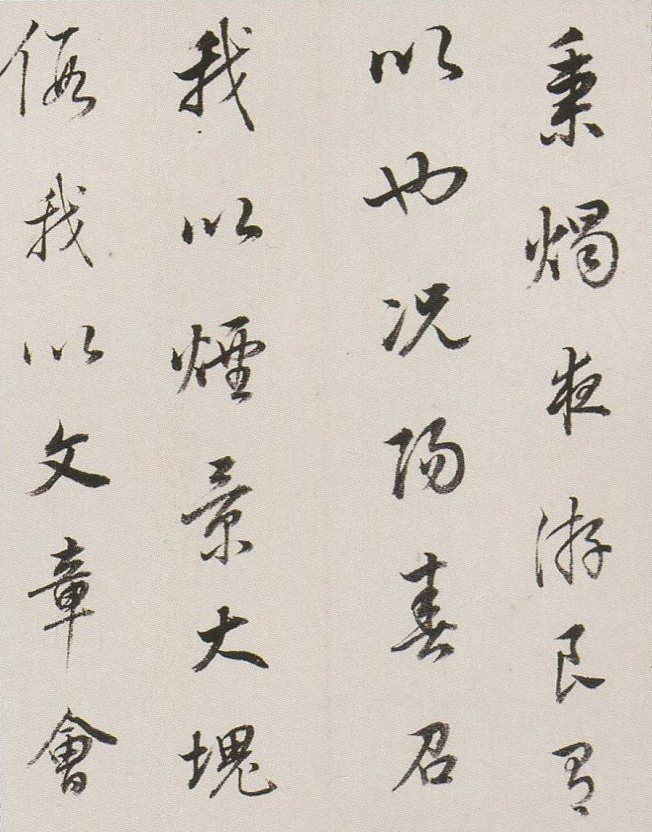 秉燭夜游良有
以也况陽春召
我以煙景大塊
假我以文章會